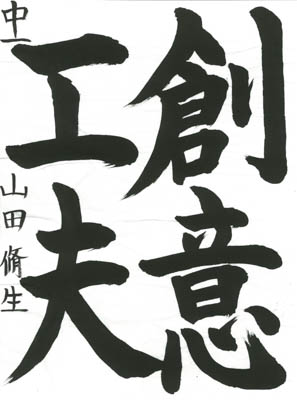 創意
工夫
中一 山田脩生